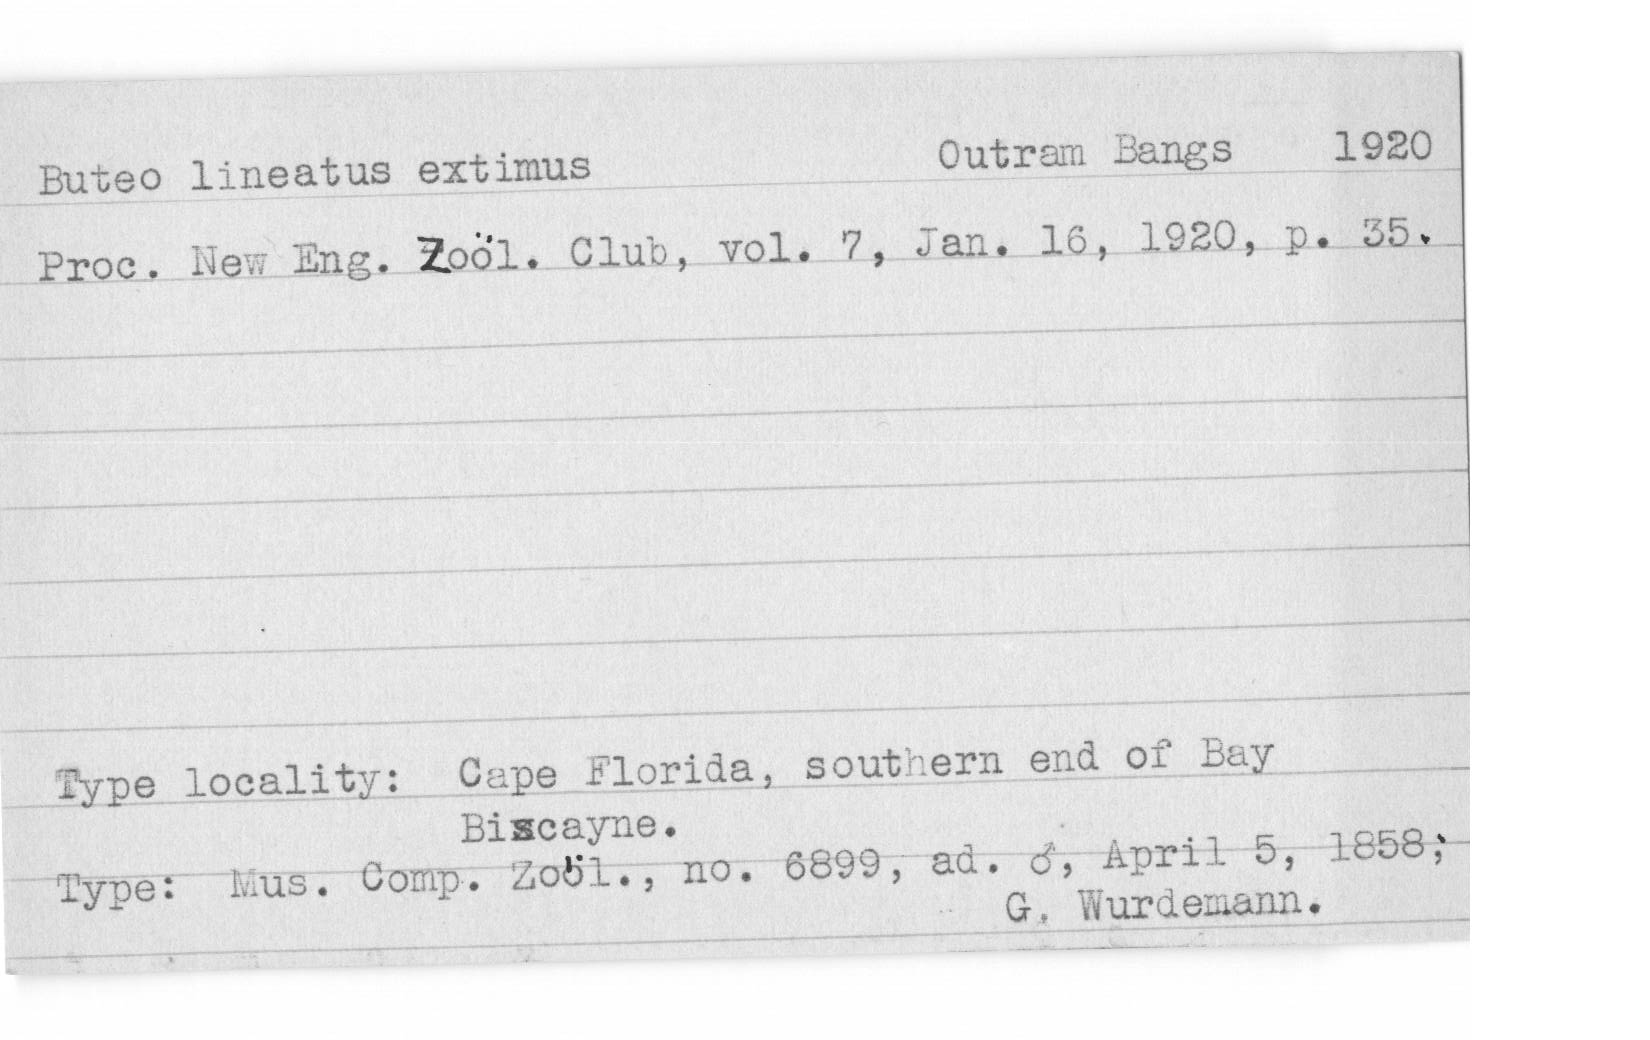 Buteo lineatus extimus Outram Bangs 1920
Proc. New Eng. Zoöl. Club, vol. 7, Jan. 16, 1920, p. 35.
Type locality: Cape Florida, southern end of Bay
Biscayne.
Type: Mus. Comp. Zoöl., no. 6899, ad. ♂, April 5, 1858;
G. Wurdemann.